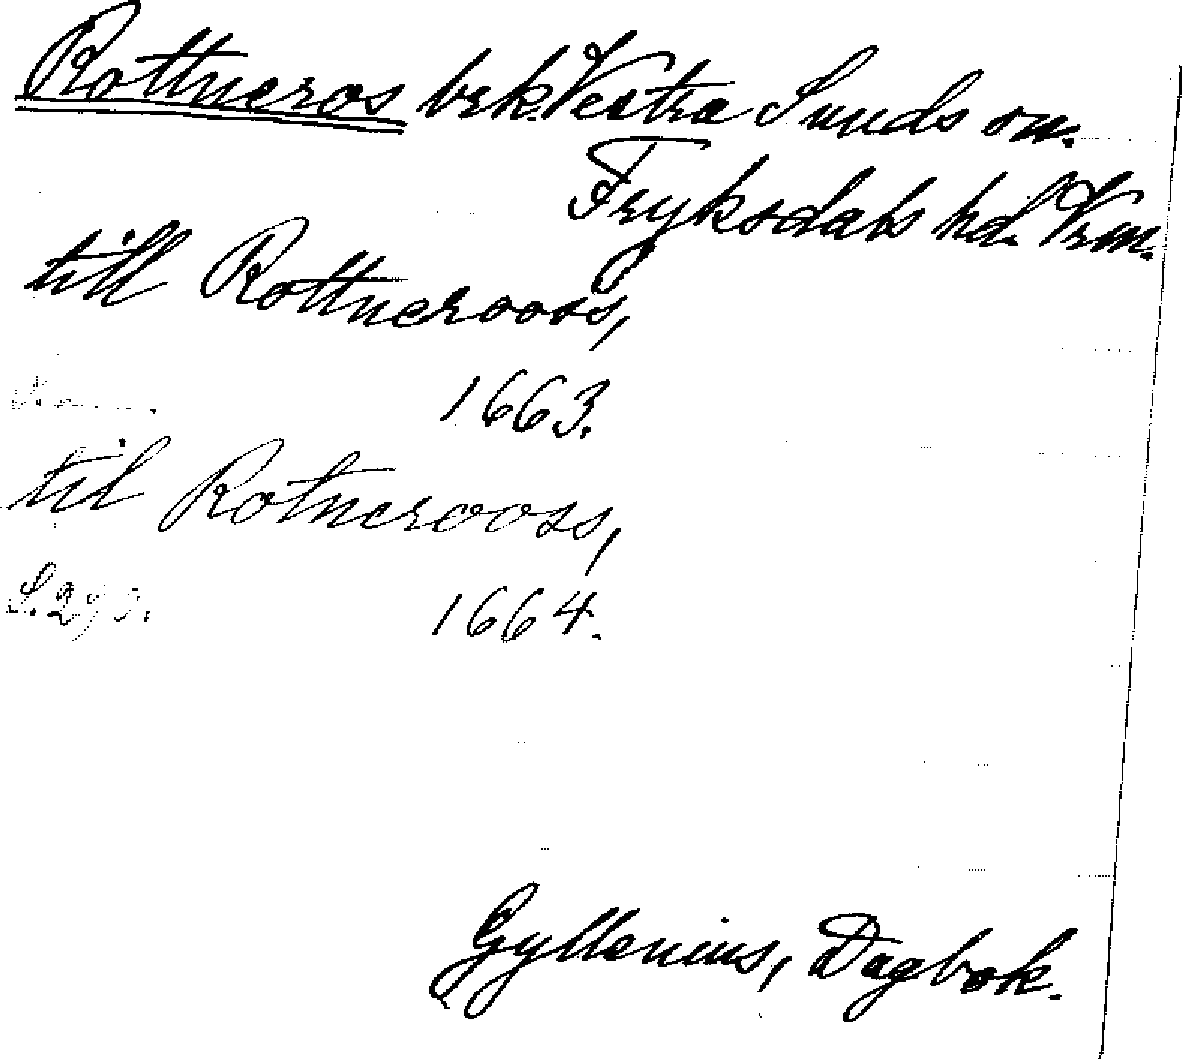 Rottneros brk Vestra Sunds sn.
Fryksdals hd. Vrm.
till Rottnerooss,
1663.
til Rotnerooss,
1664.
Gyllenius, Dagbok.